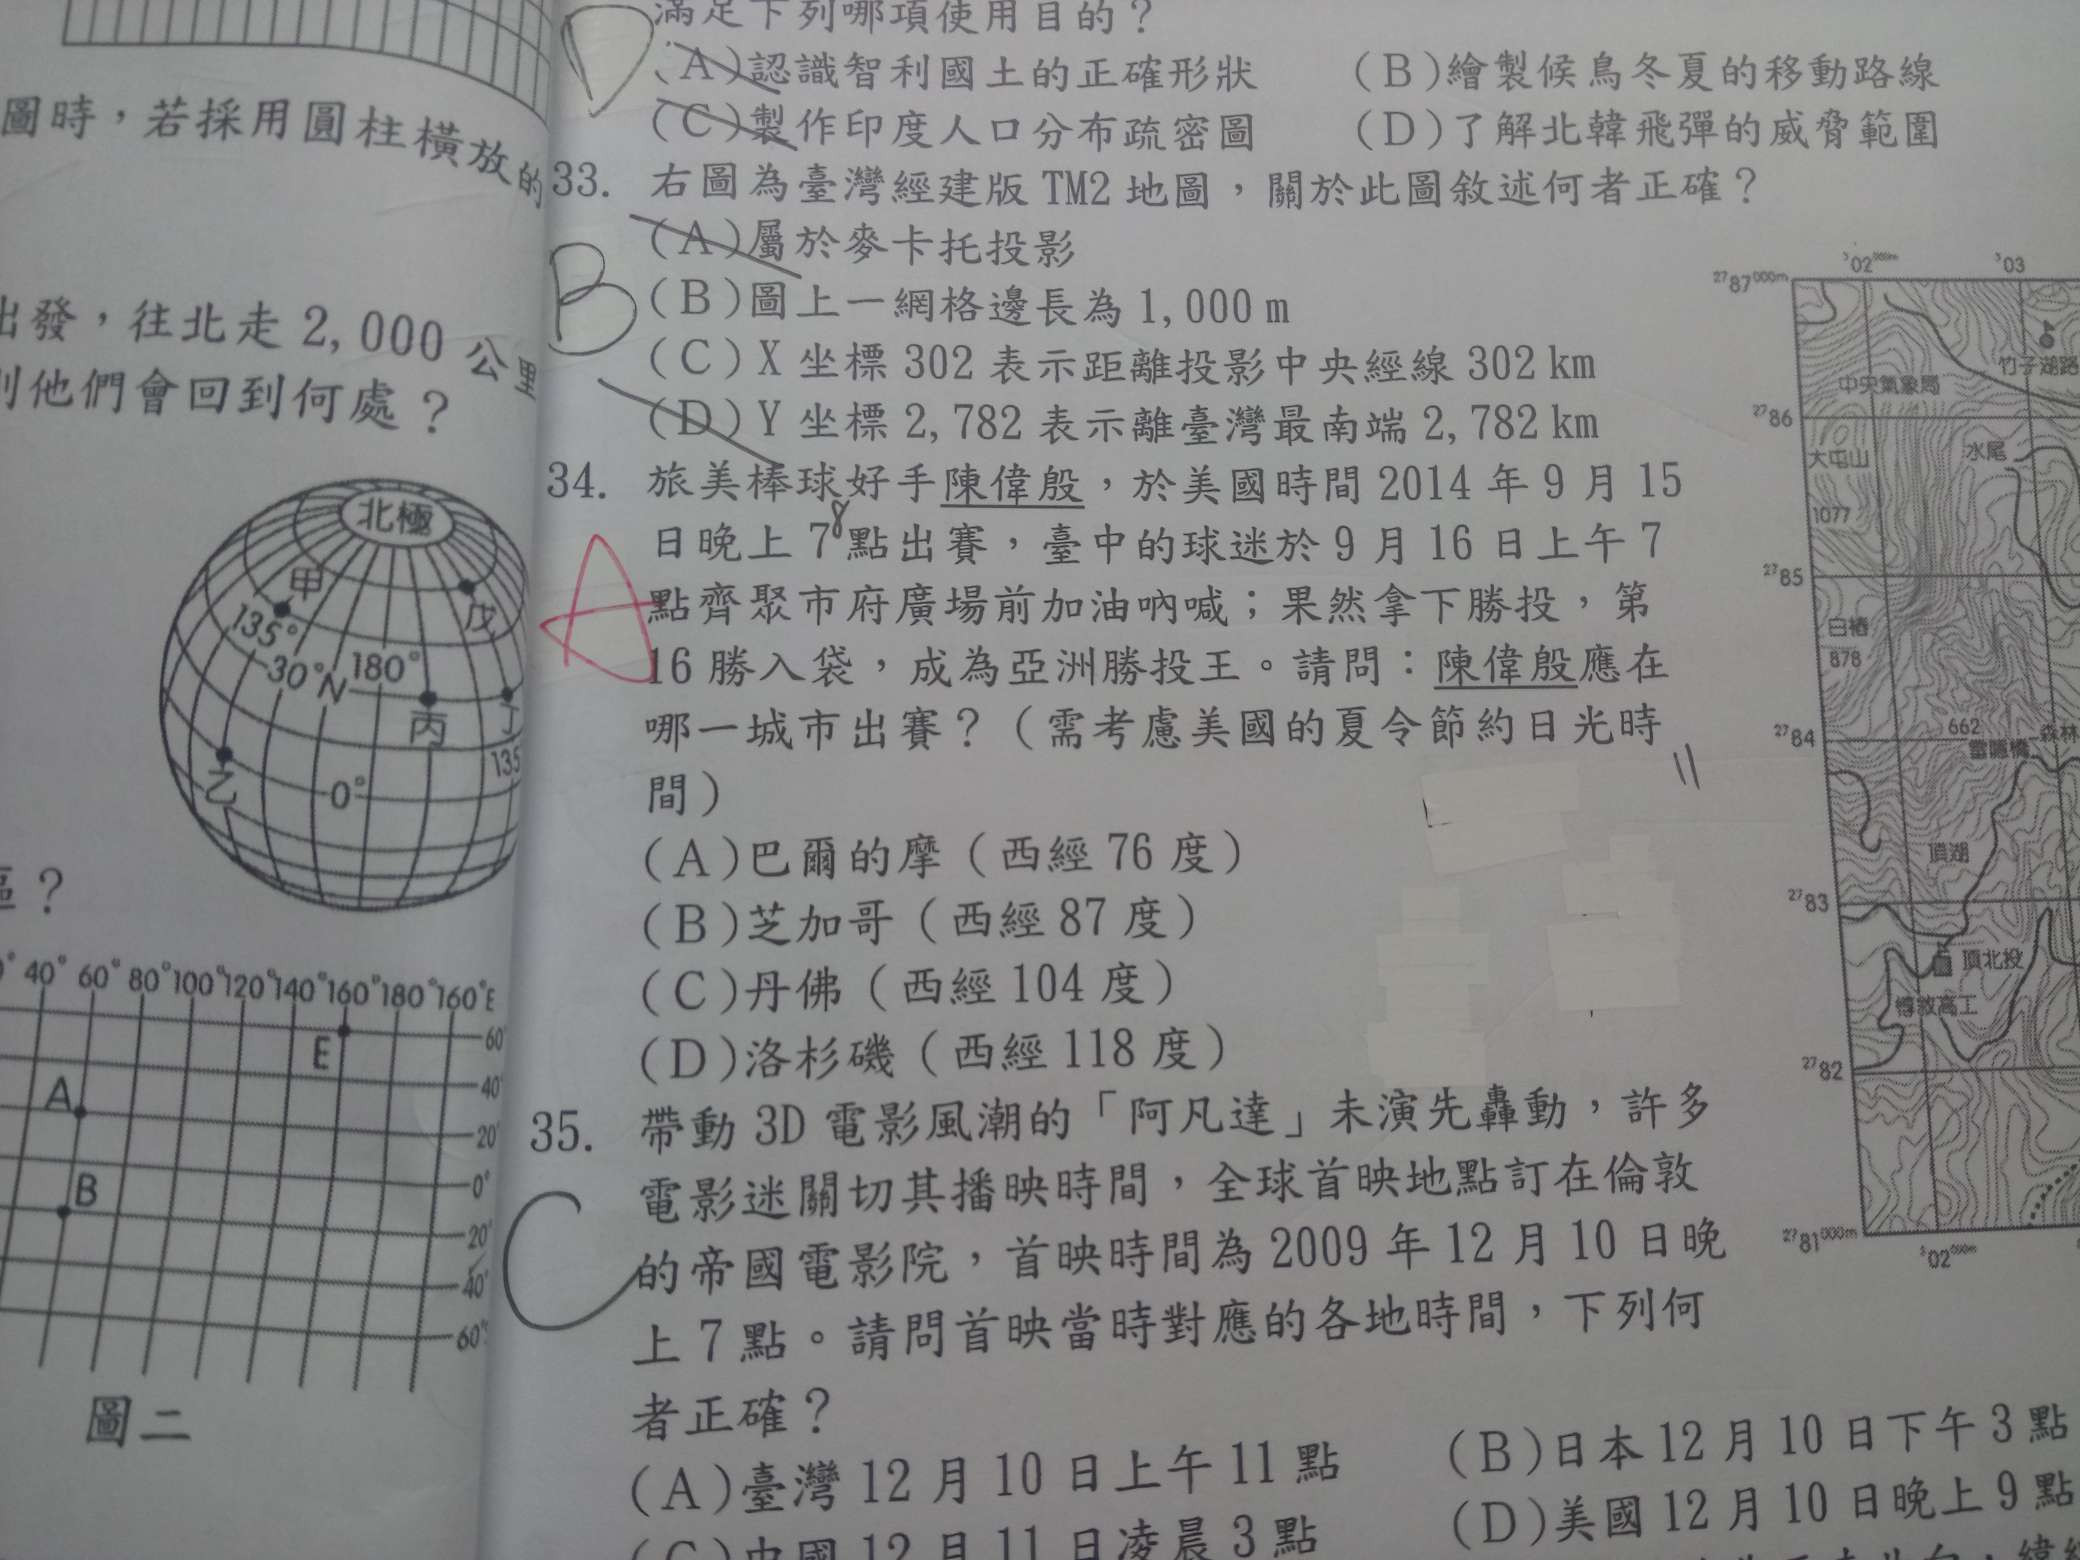 圖時，若採用圓柱橫放的
出發，往北走 2,000 公里
則他們會回到何處？
北極
甲
戊
135°
30°N
180°
丙
丁
135
乙
0°
區？
40° 60° 80° 100° 120° 140° 160° 180° 160°E
60°
E
40°
A
20°
0°
B
20°
40°
60°
圖二
滿足下列哪項使用目的？
D
(A)認識智利國土的正確形狀 (B)繪製候鳥冬夏的移動路線
(C)製作印度人口分布疏密圖 (D)了解北韓飛彈的威脅範圍
33. 右圖為臺灣經建版 TM2 地圖，關於此圖敘述何者正確？
(A)屬於麥卡托投影
B
(B)圖上一網格邊長為 1,000 m
(C)X 坐標 302 表示距離投影中央經線 302 km
(D)Y 坐標 2,782 表示離臺灣最南端 2,782 km
34. 旅美棒球好手陳偉殷，於美國時間 2014 年 9 月 15
8
日晚上 7 點出賽，臺中的球迷於 9 月 16 日上午 7
A
點齊聚市府廣場前加油吶喊；果然拿下勝投，第
16 勝入袋，成為亞洲勝投王。請問：陳偉殷應在
哪一城市出賽？（需考慮美國的夏令節約日光時
間）
(A)巴爾的摩（西經 76 度）
(B)芝加哥（西經 87 度）
(C)丹佛（西經 104 度）
(D)洛杉磯（西經 118 度）
35. 帶動 3D 電影風潮的「阿凡達」未演先轟動，許多
電影迷關切其播映時間，全球首映地點訂在倫敦
C
的帝國電影院，首映時間為 2009 年 12 月 10 日晚
上 7 點。請問首映當時對應的各地時間，下列何
者正確？
(A)臺灣 12 月 10 日上午 11 點 (B)日本 12 月 10 日下午 3 點
(C)中國 12 月 11 日凌晨 3 點 (D)美國 12 月 10 日晚上 9 點
302000m 303
2787000m
竹子湖路
中央氣象局
2786
大屯山
水尾
1077
2785
白櫧
878
2784
662
森林
頂湖
2783
頂北投
惇敘高工
2782
2781000m
302000m